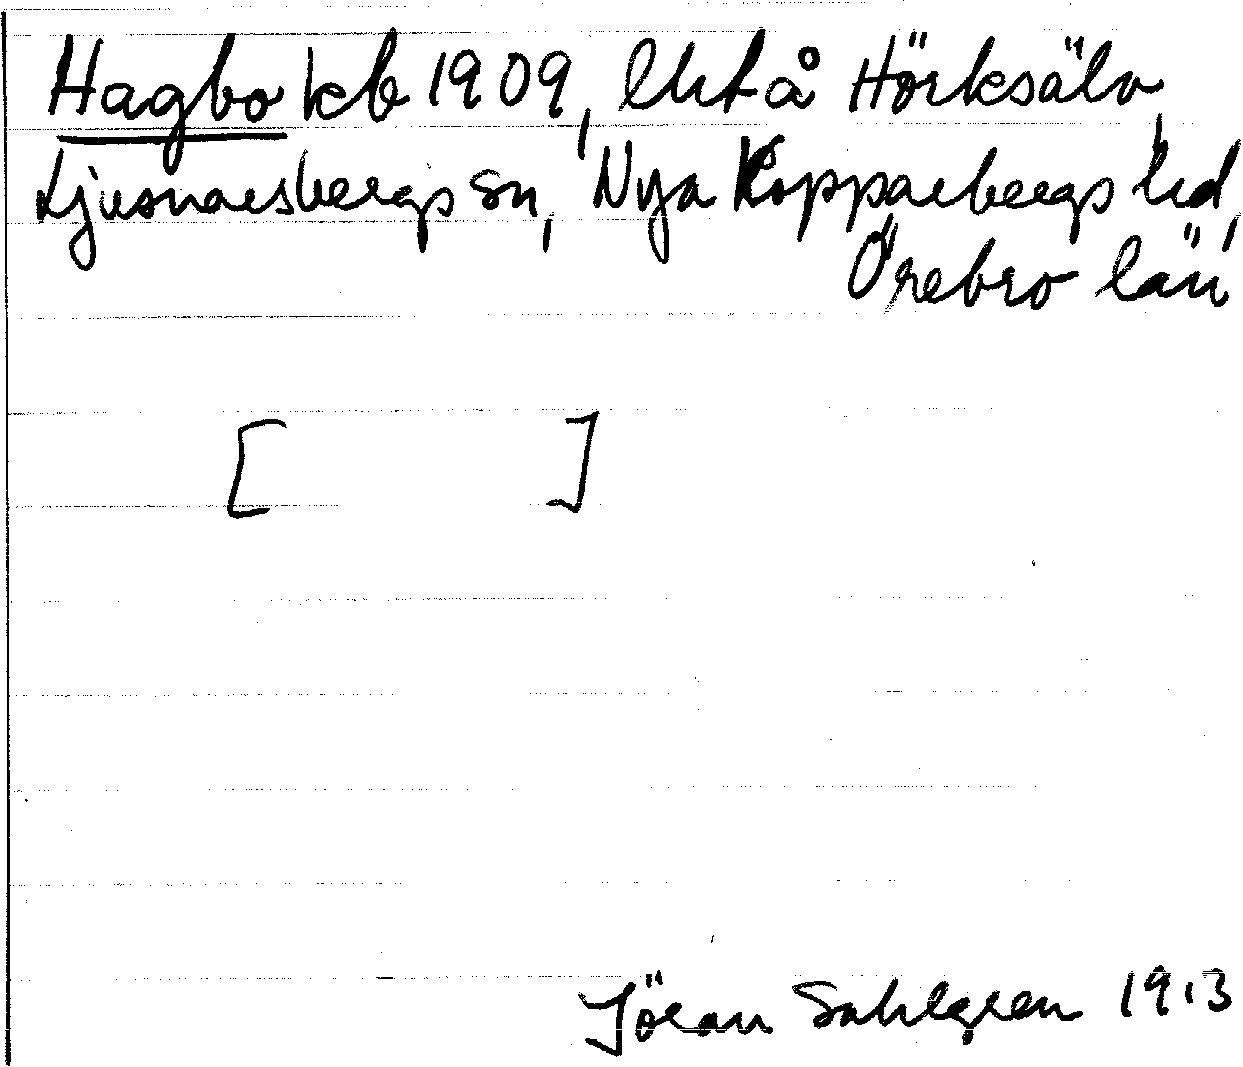 Hagbo kb 1909, lht å Hörksälv,
Ljusnarsbergs sn, Nya Kopparbergs hd,
Örebro län
[ ]
Jöran Sahlgren 1913